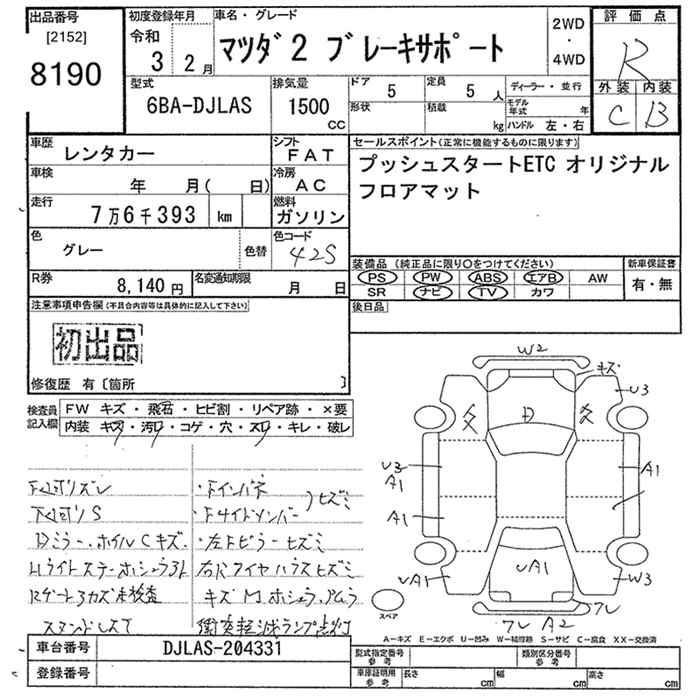 出品番号
[2152]
8190
初度登録年月
令和
3 2月
車名・グレード
マツダ2 ブレーキサポート
2WD
・
4WD
評価点
R
外装 内装
C B
型式
6BA-DJLAS
排気量
1500
CC
ドア 5
定員 5人
形状
積載 kg
ディーラー・並行
モデル年式 年
ハンドル 左・右
車歴 レンタカー
シフト FAT
車検 年 月( 日)
冷房 AC
走行 7万6千393 km
燃料 ガソリン
色 グレー 色替
色コード 42S
R券 8,140円
名変通知期限 月 日
セールスポイント(正常に機能するものに限ります)
プッシュスタートETC オリジナル
フロアマット
装備品(純正品に限り〇をつけてください)
PS PW ABS エアB AW
SR ナビ TV カワ
新車保証書
有・無
後日品
注意事項申告欄(不具合内容等は具体的に記入して下さい)
初出品
修復歴 有〔箇所 〕
検査員記入欄
FW キズ・飛石・ヒビ割・リペア跡・×要
内装 キズ・汚レ・コゲ・穴・スレ・キレ・破レ
Dミラー、ホイルCキズ
スタンドレスで
・Fインパネ
・Fサイドメンバー
・左Fピラーヒズミ
右Fタイヤハウスヒズミ
衝突軽減ランプ点灯
W2
キズ
U3
D
U3
A1
A1
A1
UA1
UA1
W3
ワレ A2
ワレ
スペア
A-キズ E-エクボ U-凹み W-補修跡 S-サビ C-腐食 XX-交換済
車台番号 DJLAS-204331
登録番号
型式指定番号 参考
類別区分番号 参考
車庫証明用 参考
長さ cm
幅 cm
高さ cm